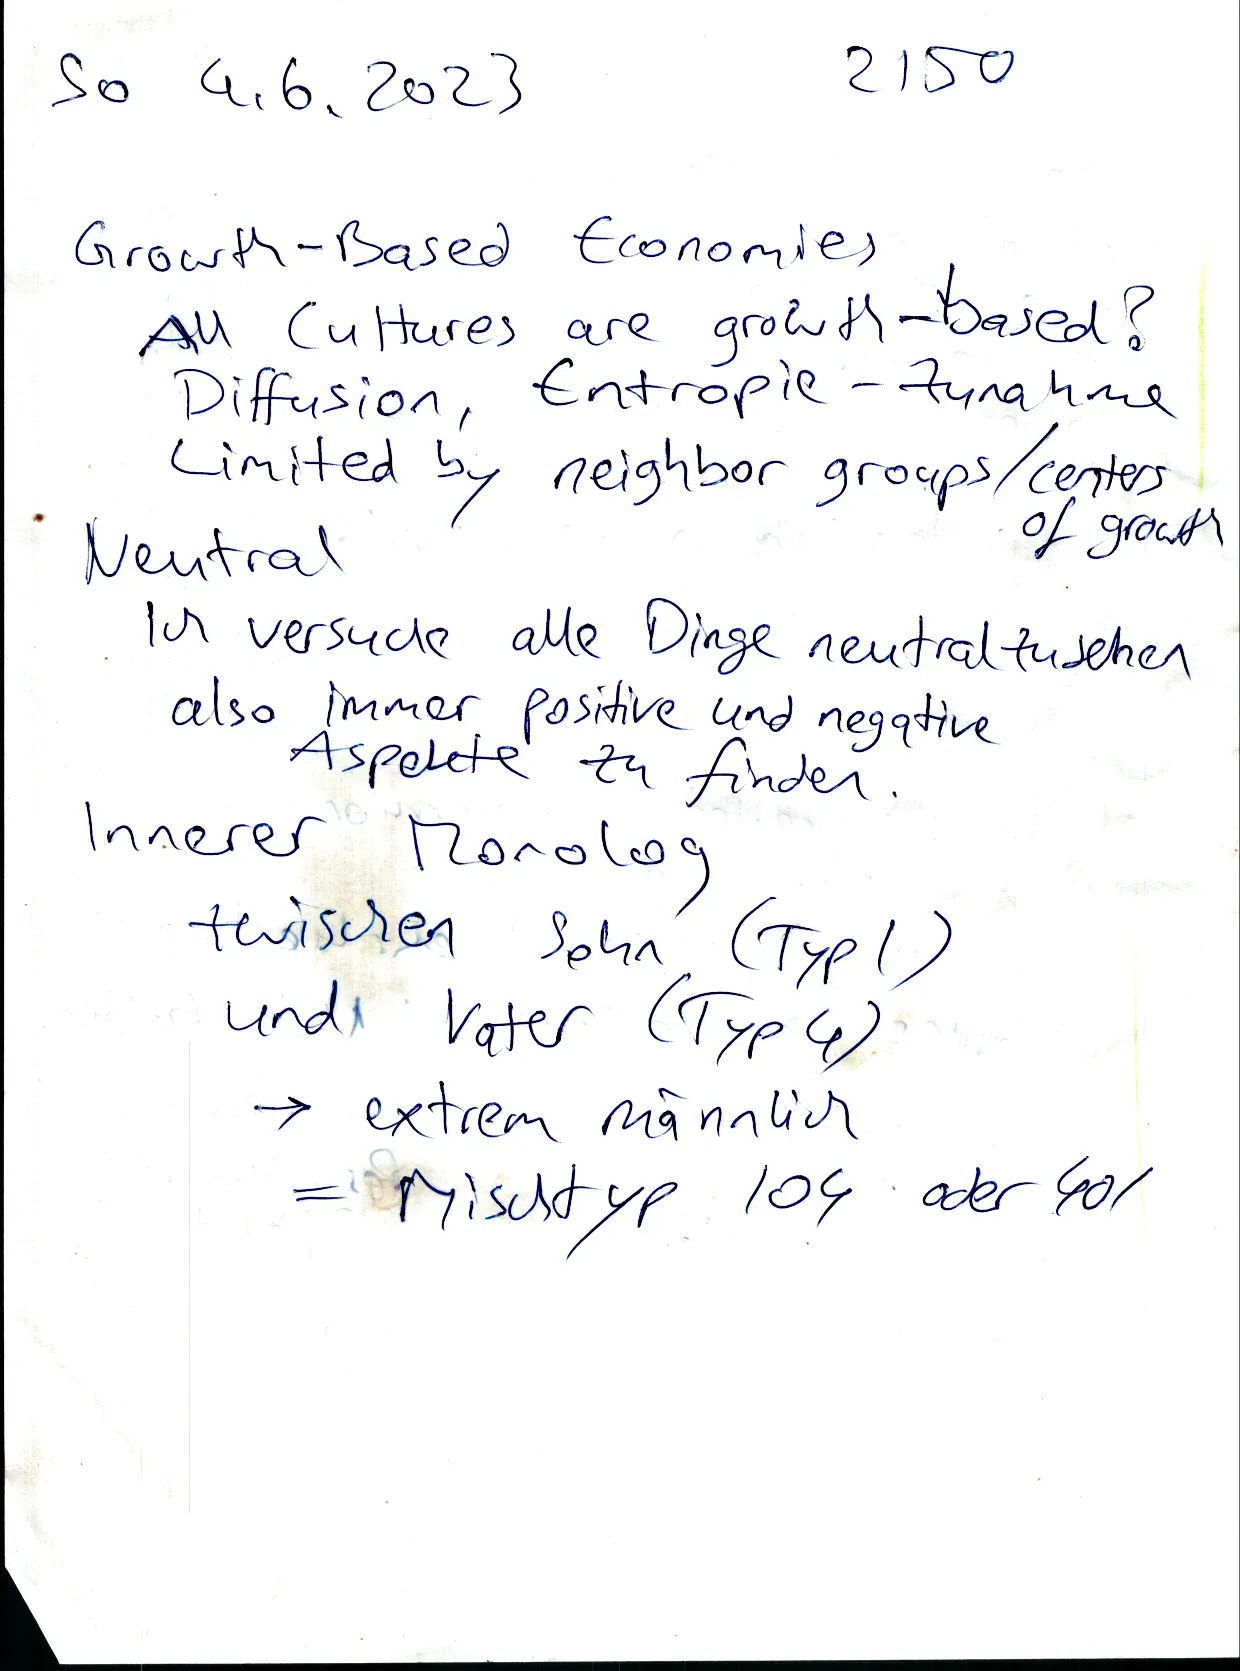 So 4.6.2023 2150
Growth-Based Economies
All Cultures are growth-based?
Diffusion, Entropie-Zunahme
Limited by neighbor groups/centers
of growth
Neutral
Ich versuche alle Dinge neutral zu sehen
also immer positive und negative
Aspekte zu finden.
Innerer Monolog
zwischen Sohn (Typ 1)
und Vater (Typ 4)
→ extrem männlich
= Mischtyp 104 oder 401